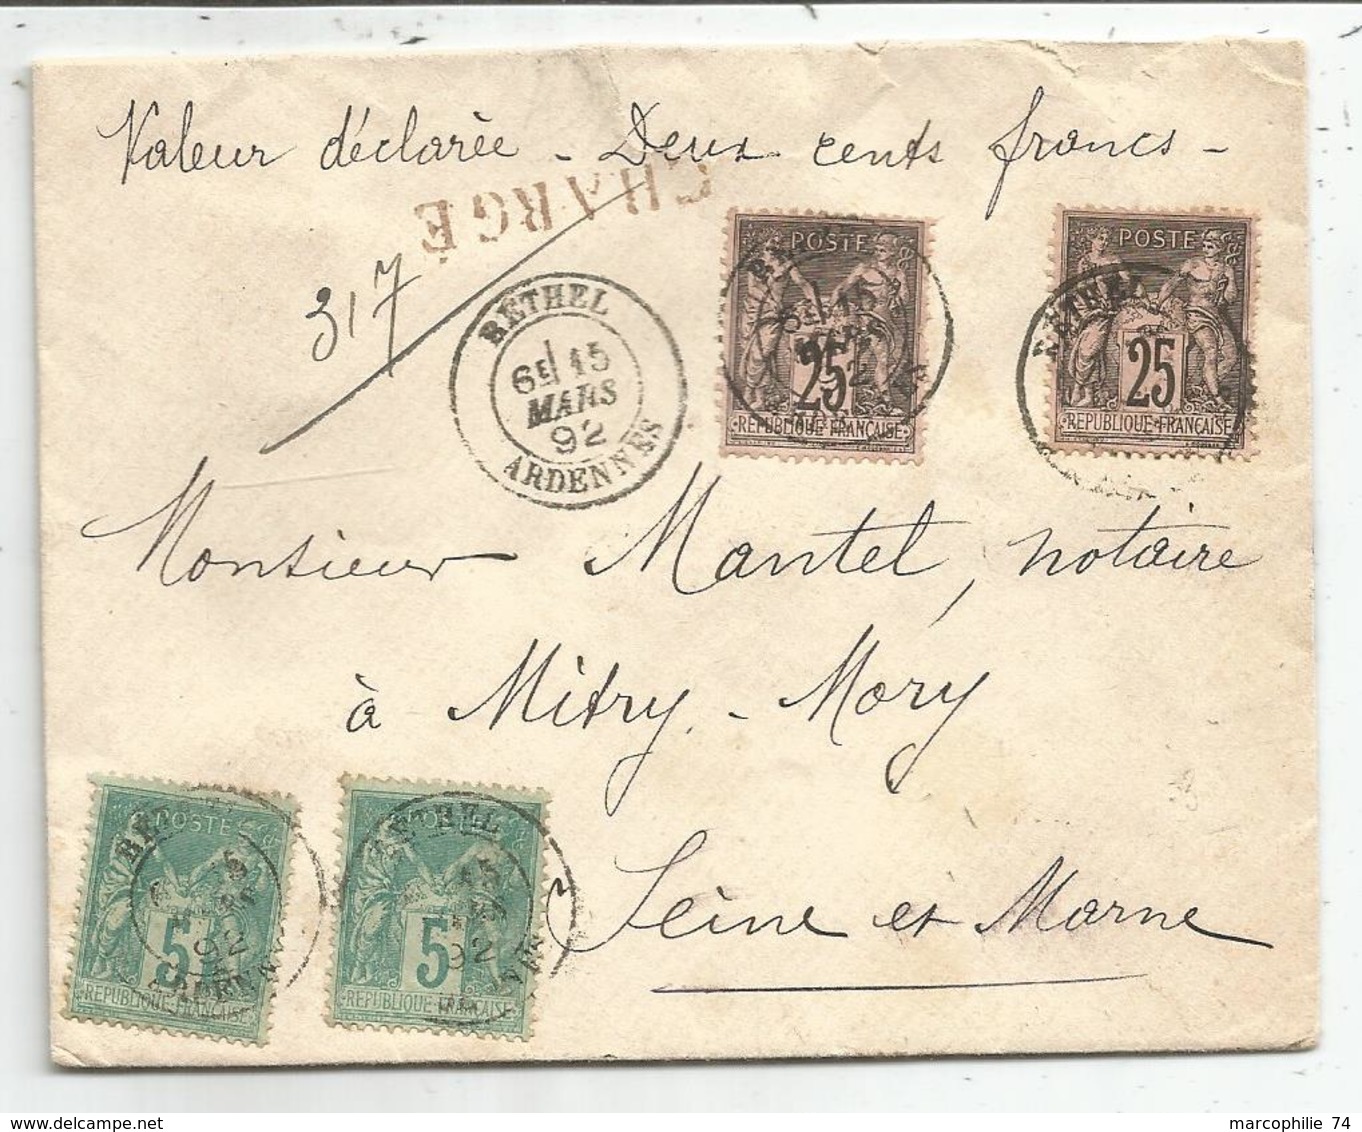 Valeur déclarée - Deux cents francs -
CHARGÉ
317
RETHEL
6E 15
MARS
92
ARDENNES
POSTE
25
REPUBLIQUE FRANÇAISE
POSTE
RETHEL
25
REPUBLIQUE FRANÇAISE
Monsieur Mantel, notaire
à Mitry-Mory
Seine et Marne
POSTE
5
92
REPUBLIQUE FRANÇAISE
RETHEL
15
5
92
REPUBLIQUE FRANÇAISE
marcophilie 74